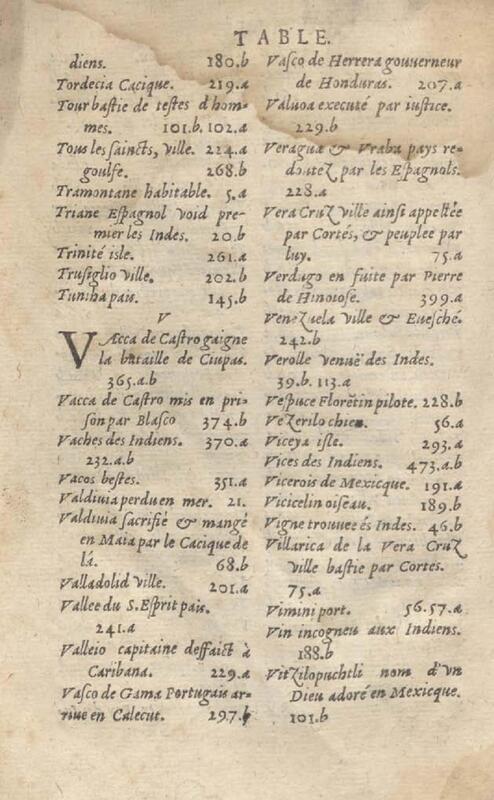 TABLE.
diens. 180.b
Tordecia Cacique. 219.a
Tour bastie de testes d'hom-
mes. 101.b. 102.a
Tous les saincts, ville. 224.a
goulfe. 268.b
Tramontane habitable. 5.a
Triane Espagnol void pre-
mier les Indes. 20.b
Trinité isle. 261.a
Trusiglio ville. 202.b
Tuniha pais. 145.b
V
VAcca de Castro gaigne
la bataille de Ciupas.
365.a.b
Vacca de Castro mis en pri-
son par Blasco 374.b
Vaches des Indiens. 370.a
232.a.b
Vacos bestes. 351.a
Valdivia perdu en mer. 21.
Valdiuia sacrifié & mangé
en Maia par le Cacique de
lá. 68.b
Valladolid ville. 201.a
Vallee du S. Esprit pais.
241.a
Valleio capitaine deffaict à
Caribana. 229.a
Vasco de Gama Portugais ar-
riue en Calecut. 297.b
Vasco de Herrera gouuerneur
de Honduras. 207.a
Valuoa executé par iustice.
229.b
Veragua & Vraba pays re-
doutez par les Espagnols.
228.a
Vera Cruz ville ainsi appellée
par Cortés, & peuplee par
luy. 75.a
Verdugo en fuite par Pierre
de Hinoiose. 399.a
Venezuela ville & Euesché.
242.b
Verolle venuë des Indes.
39.b. 113.a
Vespuce Florẽtin pilote. 228.b
Vezerilo chien. 56.a
Viceya isle. 293.a
Vices des Indiens. 473.a.b
Vicerois de Mexicque. 191.a
Vicicelin oiseau. 189.b
Vigne trouuee és Indes. 46.b
Villarica de la Vera Cruz
ville bastie par Cortes.
75.a
Vimini port. 56.57.a
Vin incogneu aux Indiens.
188.b
Vitzilopuchtli nom d'vn
Dieu adoré en Mexicque.
101.b